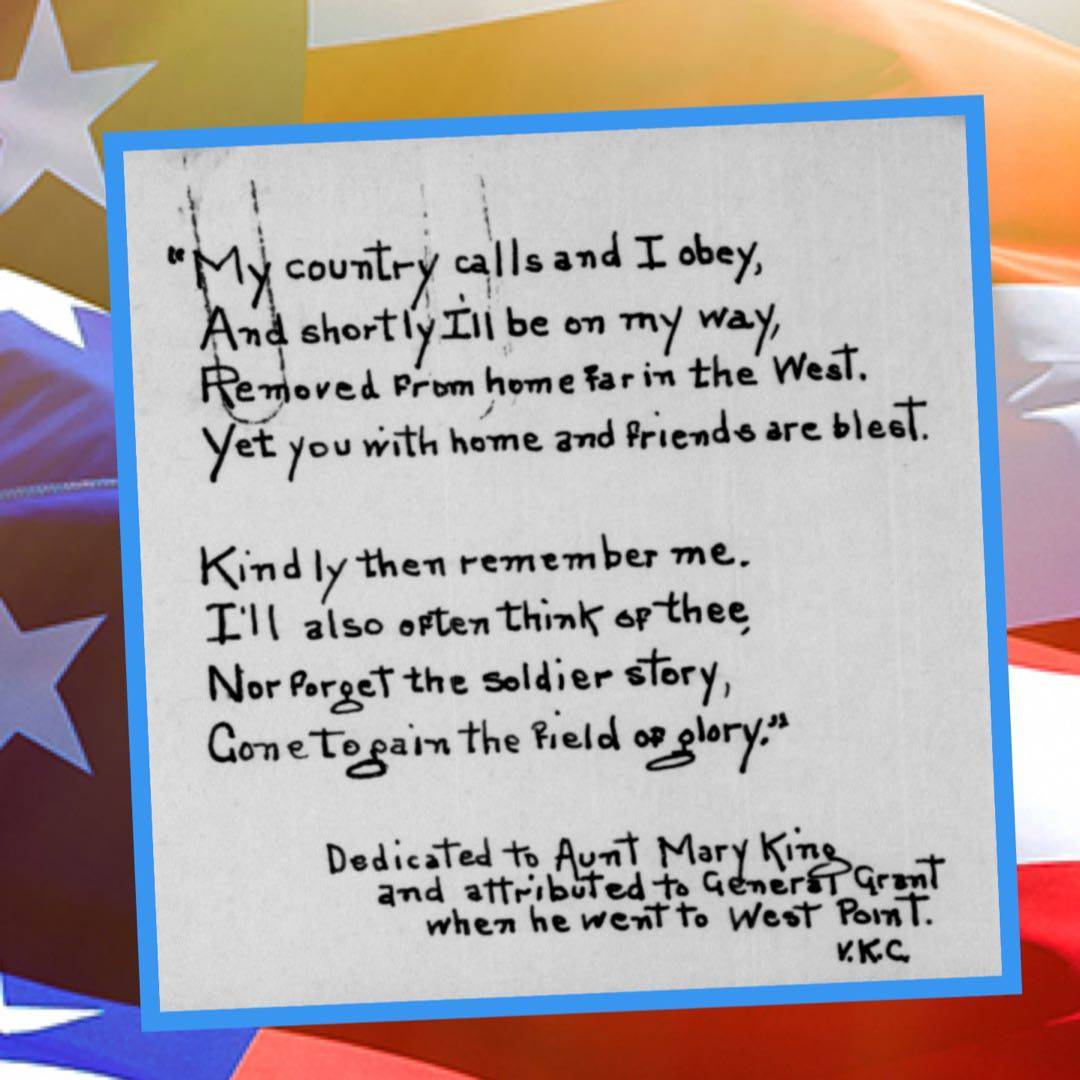 "My country calls and I obey,
And shortly I'll be on my way,
Removed from home far in the West.
Yet you with home and friends are blest.
Kindly then remember me.
I'll also often think of thee,
Nor forget the soldier story,
Gone to gain the field of glory."
Dedicated to Aunt Mary King
and attributed to General Grant
when he went to West Point.
V.K.C.